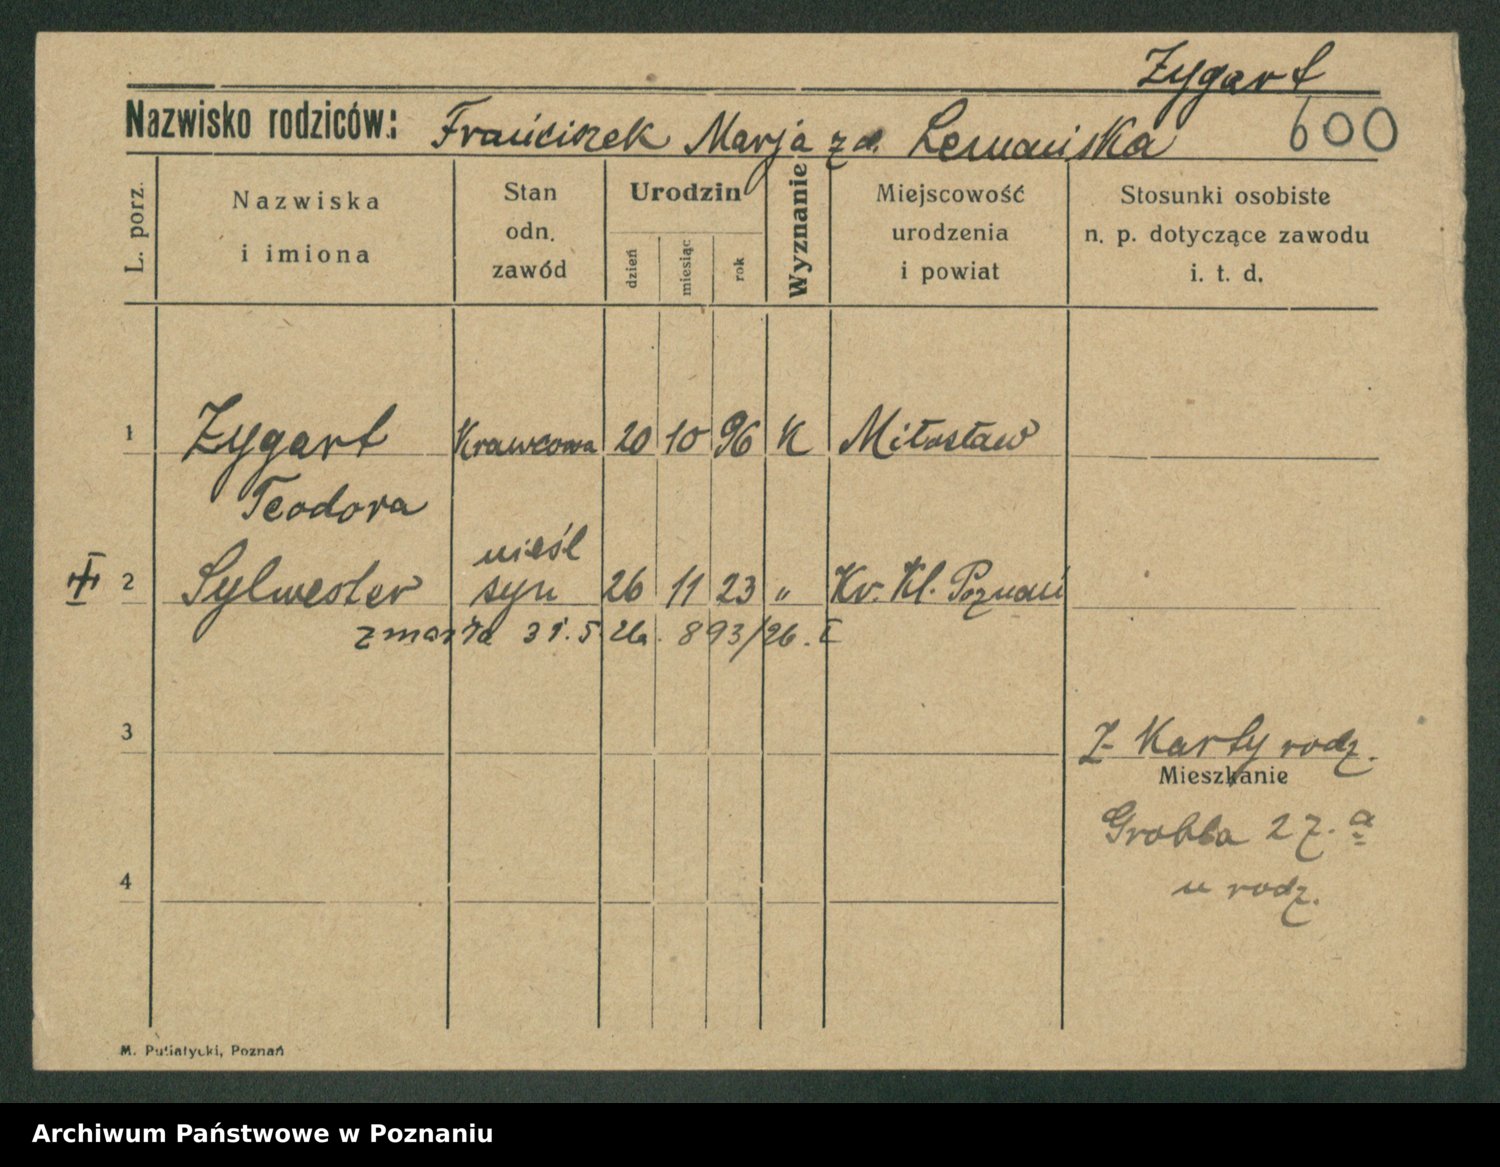 Zygart
Nazwisko rodziców: Franciszek Marja zd. Lemańska 600
L. porz. Nazwiska i imiona Stan odn. zawód Urodzin dzień miesiąc rok Wyznanie Miejscowość urodzenia i powiat Stosunki osobiste n. p. dotyczące zawodu i. t. d.
1 Zygart Krawcowa 20 10 96 K Miłosław
Teodora
nieśl
2 Sylwester syn 26 11 23 " Kr. Kl. Poznań
zmarła 31.5 26. 893/26. I
3 Z Karty rodz.
Mieszkanie
Grobla 27. a
4 u rodz.
M. Putiatycki, Poznań
Archiwum Państwowe w Poznaniu